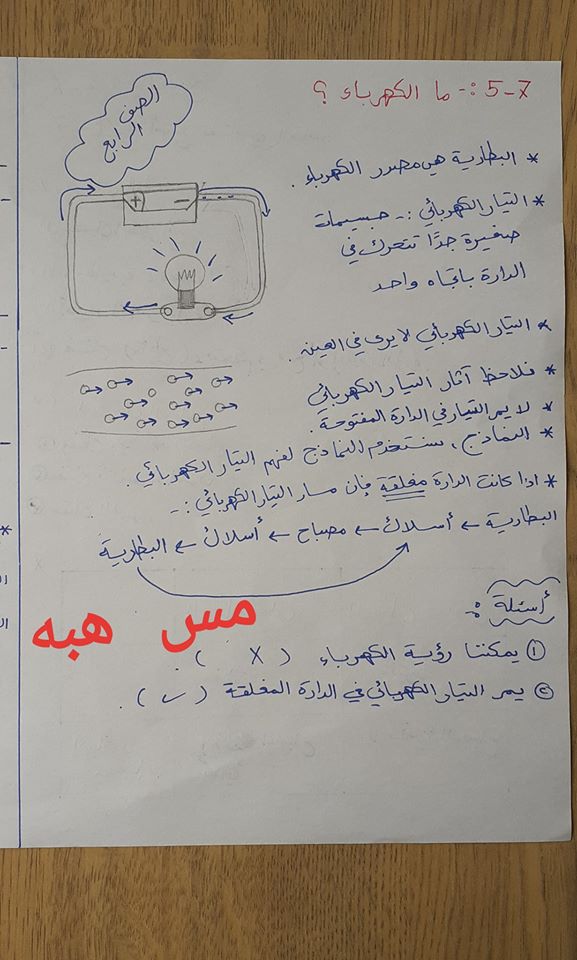 5-7 :- ما الكهرباء ؟
الصف
الرابع
* البطارية هي مصدر الكهرباء .
* التيار الكهربائي :- جسيمات
صغيرة جدًا تتحرك في
الدارة باتجاه واحد
* التيار الكهربائي لا يرى في العين .
* نلاحظ آثار التيار الكهربائي
* لا يمر التيار في الدارة المفتوحة .
* النماذج ، سنستخدم النماذج لفهم التيار الكهربائي .
* اذا كانت الدارة مغلقة فإن مسار التيار الكهربائي :-
البطارية ← أسلاك ← مصباح ← أسلاك ← البطارية
مس هبه
أسئلة :
① يمكننا رؤية الكهرباء ( X ) .
② يمر التيار الكهربائي في الدارة المغلقة ( ✓ ) .
+ -